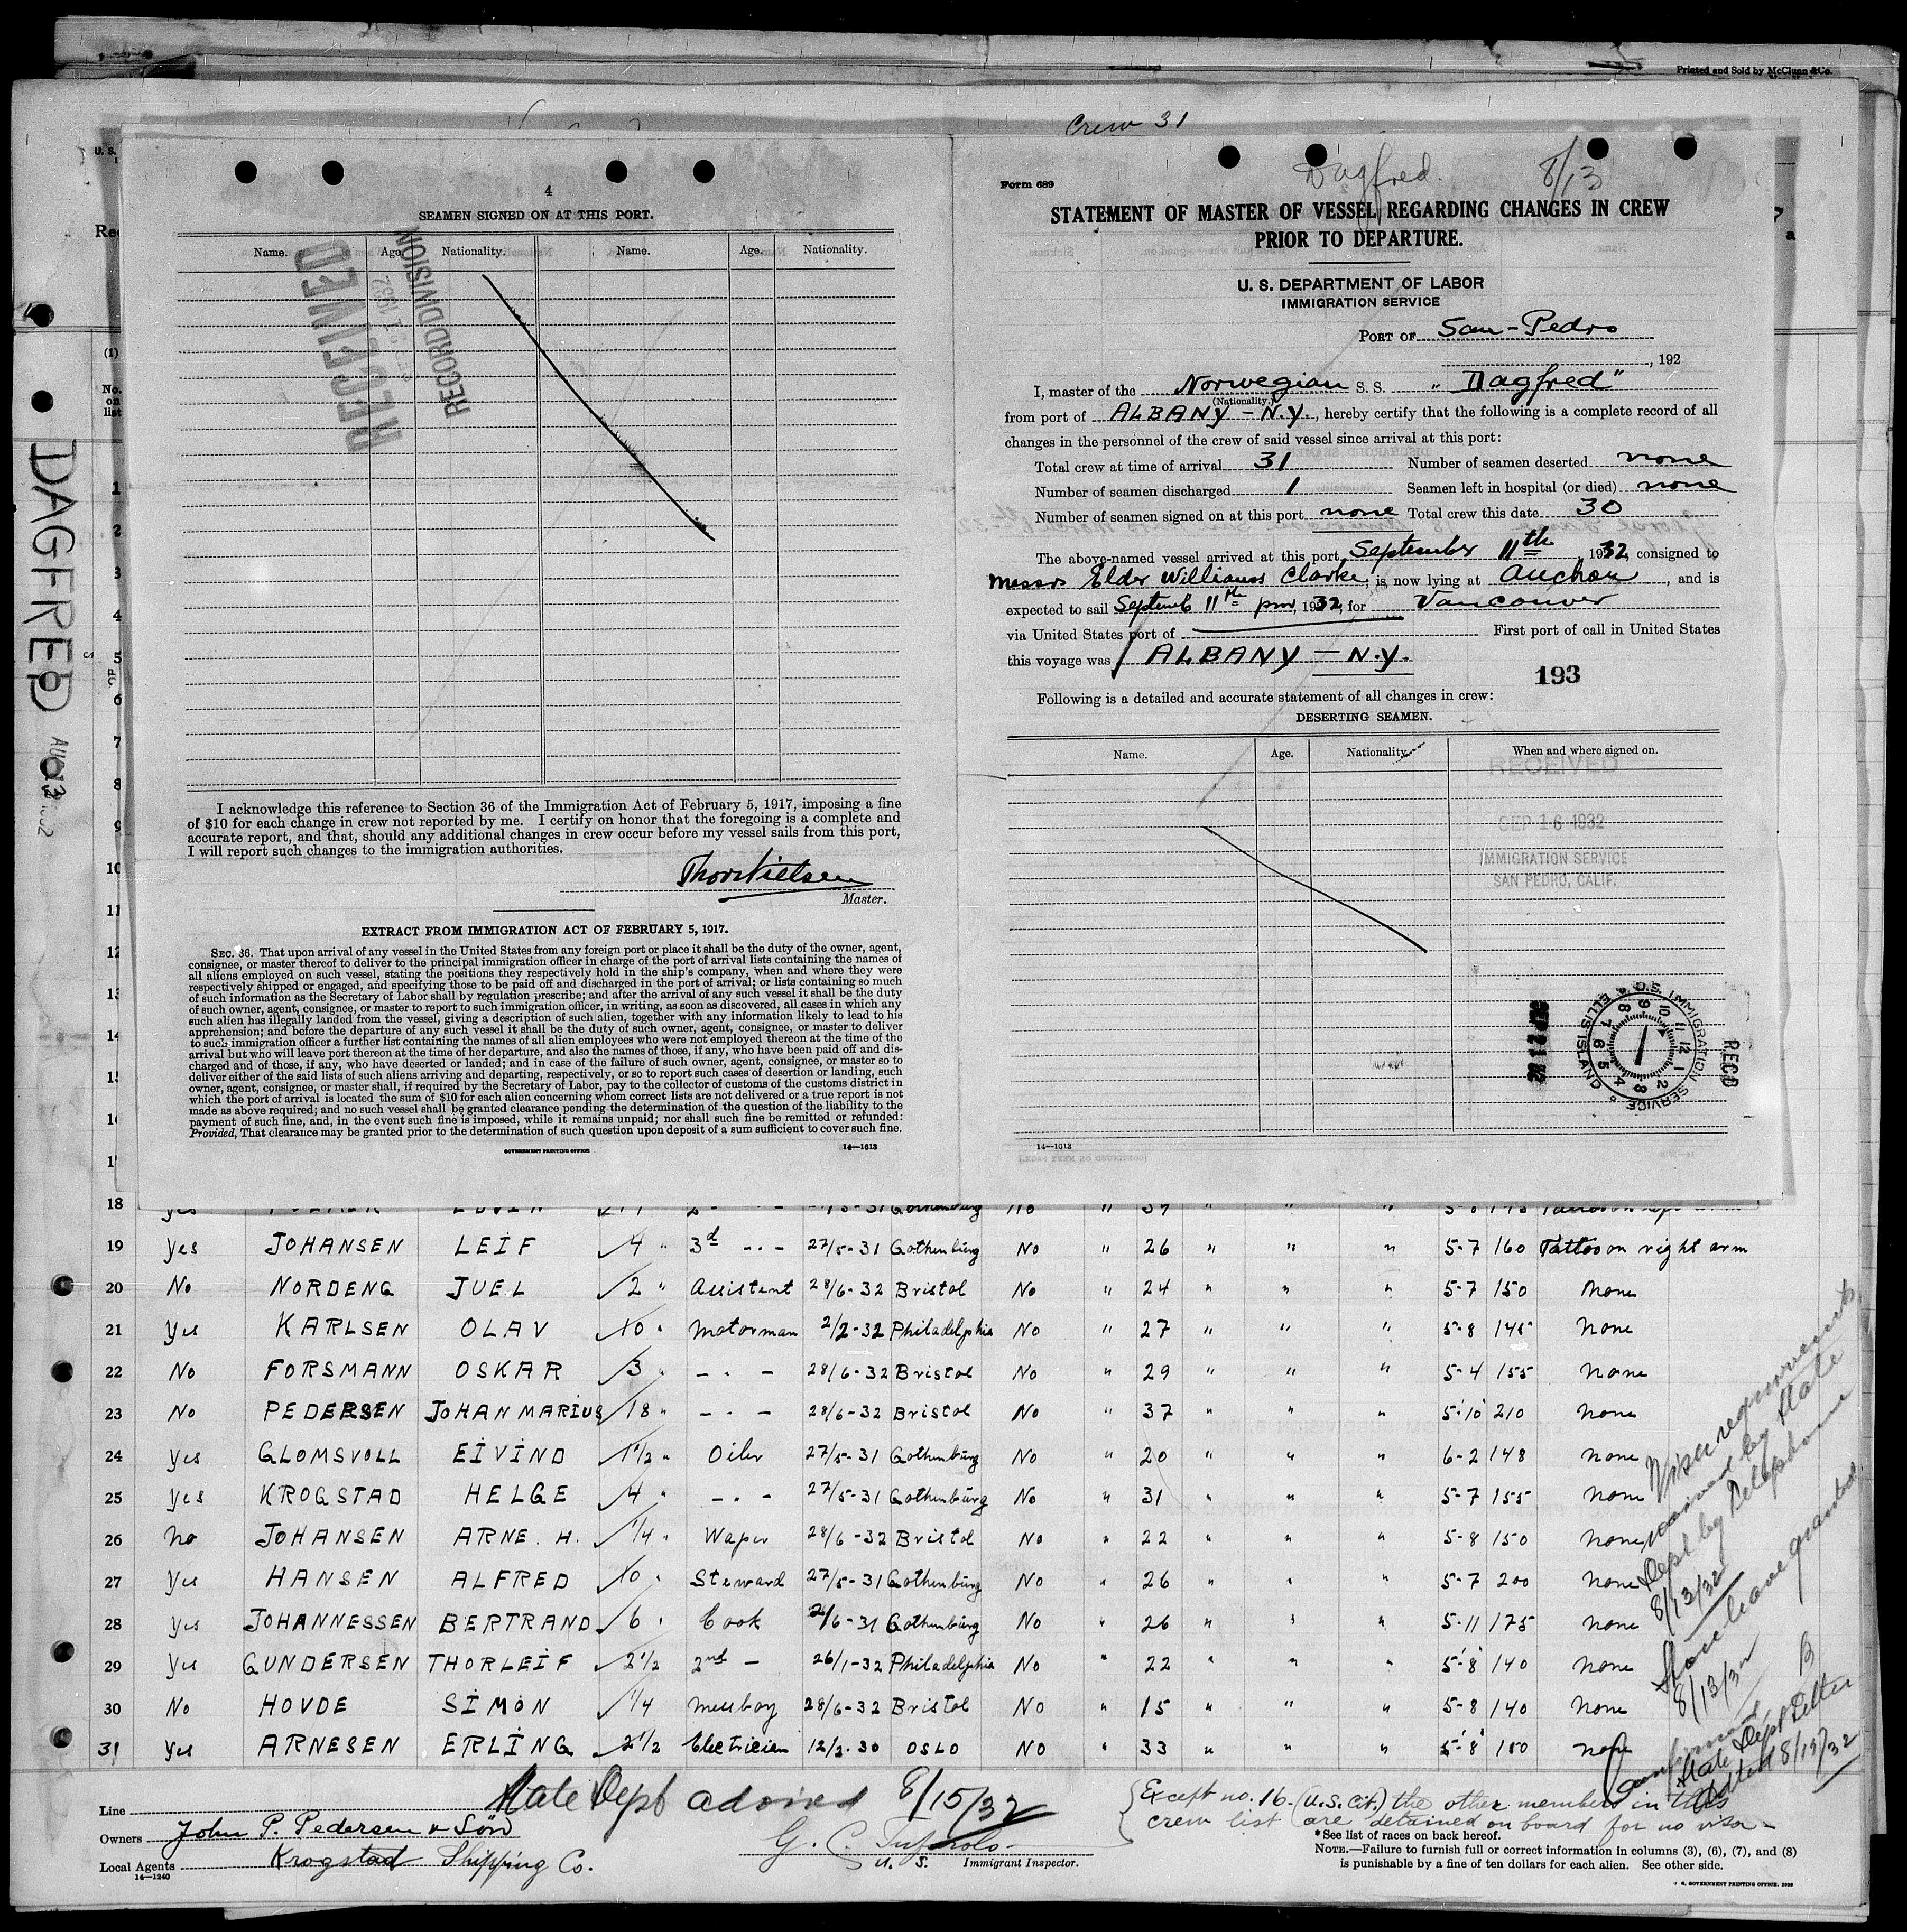 Printed and Sold by McClunn & Co.
Crew 31
U. S.
4
SEAMEN SIGNED ON AT THIS PORT.
Name. Age. Nationality. Name. Age. Nationality.
RECEIVED
RECORD DIVISION
I acknowledge this reference to Section 36 of the Immigration Act of February 5, 1917, imposing a fine
of $10 for each change in crew not reported by me. I certify on honor that the foregoing is a complete and
accurate report, and that, should any additional changes in crew occur before my vessel sails from this port,
I will report such changes to the immigration authorities.
Thor Nielsen
Master.
EXTRACT FROM IMMIGRATION ACT OF FEBRUARY 5, 1917.
SEC. 36. That upon arrival of any vessel in the United States from any foreign port or place it shall be the duty of the owner, agent,
consignee, or master thereof to deliver to the principal immigration officer in charge of the port of arrival lists containing the names of
all aliens employed on such vessel, stating the positions they respectively hold in the ship's company, when and where they were
respectively shipped or engaged, and specifying those to be paid off and discharged in the port of arrival; or lists containing so much
of such information as the Secretary of Labor shall by regulation prescribe; and after the arrival of any such vessel it shall be the duty
of such owner, agent, consignee, or master to report to such immigration officer, in writing, as soon as discovered, all cases in which any
such alien has illegally landed from the vessel, giving a description of such alien, together with any information likely to lead to his
apprehension; and before the departure of any such vessel it shall be the duty of such owner, agent, consignee, or master to deliver
to such immigration officer a further list containing the names of all alien employees who were not employed thereon at the time of the
arrival but who will leave port thereon at the time of her departure, and also the names of those, if any, who have been paid off and dis-
charged and of those, if any, who have deserted or landed; and in case of the failure of such owner, agent, consignee, or master so to
deliver either of the said lists of such aliens arriving and departing, respectively, or so to report such cases of desertion or landing, such
owner, agent, consignee, or master shall, if required by the Secretary of Labor, pay to the collector of customs of the customs district in
which the port of arrival is located the sum of $10 for each alien concerning whom correct lists are not delivered or a true report is not
made as above required; and no such vessel shall be granted clearance pending the determination of the question of the liability to the
payment of such fine, and, in the event such fine is imposed, while it remains unpaid; nor shall such fine be remitted or refunded:
Provided, That clearance may be granted prior to the determination of such question upon deposit of a sum sufficient to cover such fine.
GOVERNMENT PRINTING OFFICE 14—1613
Dagfred. 8/13
Form 689
STATEMENT OF MASTER OF VESSEL REGARDING CHANGES IN CREW
PRIOR TO DEPARTURE.
U. S. DEPARTMENT OF LABOR
IMMIGRATION SERVICE
PORT OF San-Pedro
, 192
I, master of the Norwegian S. S. "Dagfred"
(Nationality.)
from port of ALBANY - N.Y., hereby certify that the following is a complete record of all
changes in the personnel of the crew of said vessel since arrival at this port:
Total crew at time of arrival 31 Number of seamen deserted none
Number of seamen discharged 1 Seamen left in hospital (or died) none
Number of seamen signed on at this port none Total crew this date 30
The above-named vessel arrived at this port September 11th, 1932, consigned to
Messrs Elder Williams Clarke, is now lying at Anchor, and is
expected to sail Septemb 11th pm, 1932, for Vancouver
via United States port of First port of call in United States
this voyage was ALBANY - N.Y.
193
Following is a detailed and accurate statement of all changes in crew:
DESERTING SEAMEN.
Name. Age. Nationality. When and where signed on.
RECEIVED
SEP 16 1932
IMMIGRATION SERVICE
SAN PEDRO, CALIF.
SEP 21 32
U.S. IMMIGRATION SERVICE ELLIS ISLAND
REC'D
14—1613
DAGFRED
(1)
No. on list
1
2
3
4
5
6
7
8
9
10
11
12
13
14
15
16
18 yes
19 Yes JOHANSEN LEIF 4 " 3d -.- 27/5-31 Gothenburg No " 26 " " " 5-7 160 Tattoo on right arm
20 No NORDENG JUEL 2 " Assistent 28/6-32 Bristol No " 24 " " " 5-7 150 None
21 Yes KARLSEN OLAV 10 " Motorman 2/2-32 Philadelphia No " 27 " " " 5-8 145 None
22 No FORSMANN OSKAR 3 " -.- 28/6-32 Bristol No " 29 " " " 5-4 155 None
23 No PEDERSEN JOHAN MARIUS 18 " -.- 28/6-32 Bristol No " 37 " " " 5-10 210 None
24 Yes GLOMSVOLL EIVIND 1 1/2 " Oiler 27/5-31 Gothenburg No " 20 " " " 6-2 148 None
25 Yes KROGSTAD HELGE 4 " -.- 27/5-31 Gothenburg No " 31 " " " 5-7 155 None
26 No JOHANSEN ARNE. H. 1/4 " Waper 28/6-32 Bristol No " 22 " " " 5-8 150 None
27 Yes HANSEN ALFRED 10 " Steward 27/5-31 Gothenburg No " 26 " " " 5-7 200 None
28 Yes JOHANNESSEN BERTRAND 6 " Cook 2/6-31 Gothenburg No " 26 " " " 5-11 175 None
29 Yes GUNDERSEN THORLEIF 2 1/2 2nd - 26/1-32 Philadelphia No " 22 " " " 5-8 140 None
30 No HOVDE SIMON 1/4 Messboy 28/6-32 Bristol No " 15 " " " 5-8 140 None
31 Yes ARNESEN ERLING 2 1/2 Electrician 12/2-30 OSLO NO " 33 " " " 5-8 180 none
Visa requirements
waived by State
Dept by Telephone
8/13/32
Shore leave granted
8/13/32
Confirmed
State Dept letter
dated 8/15/32
State Dept advised 8/15/32
Line
Owners John P. Pedersen & Sön
Local Agents Krogstad Shipping Co.
14—1240
U. S. Immigrant Inspector.
Except no. 16. (U.S. Cit.) the other members in this
crew list are detained on board for no visa -
*See list of races on back hereof.
NOTE.—Failure to furnish full or correct information in columns (3), (6), (7), and (8)
is punishable by a fine of ten dollars for each alien. See other side.